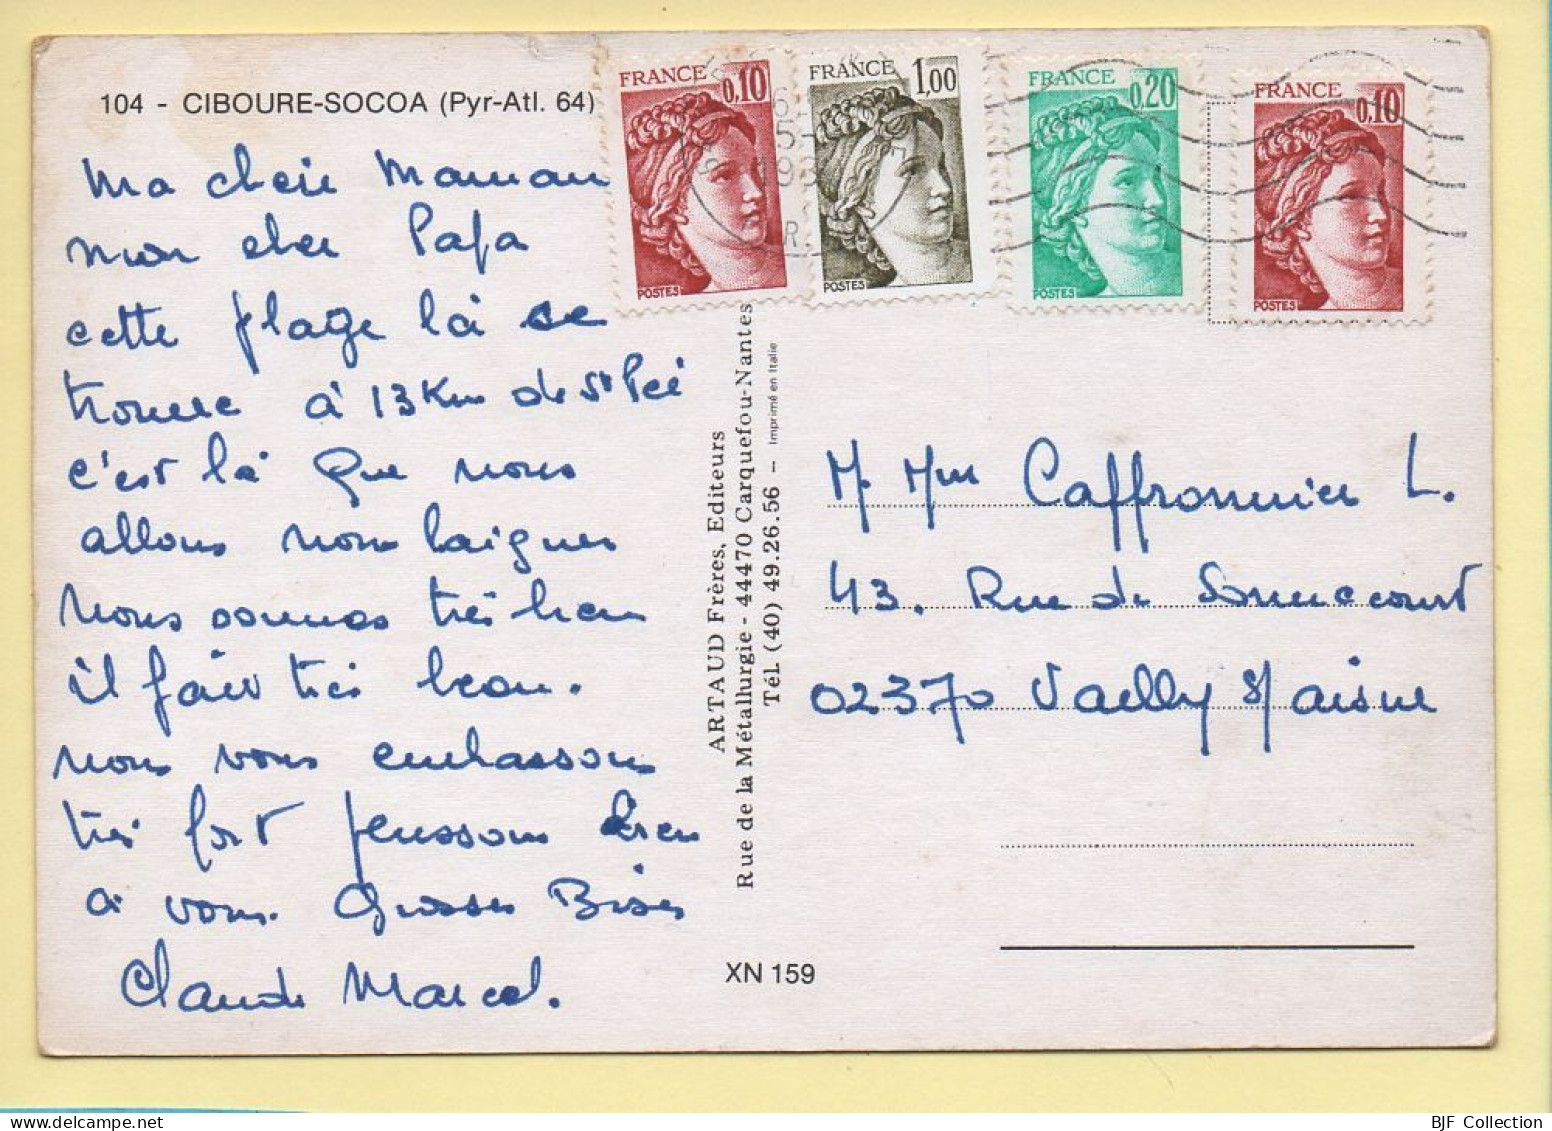 104 - CIBOURE-SOCOA (Pyr-Atl. 64)
Ma cheie Maman
mon cher Papa
cette plage là se
trouve à 13 Km de St Peé
c'est là que nous
allons nous baigner
nous sommes très bien
il fait très beau.
nous vous embrassons
très fort pensons bien
à vous. Grosses Bises
Claude Marcel.
FRANCE
0,10
POSTES
FRANCE
1,00
POSTES
FRANCE
0,20
POSTES
FRANCE
0,10
POSTES
ARTAUD Frères, Editeurs
Rue de la Métallurgie - 44470 Carquefou-Nantes
Tél. (40) 49.26.56 – Imprimé en Italie
M. Mme Caffronnier L.
43. Rue de
02370 Vailly s/ aisne
XN 159
BJF Collection